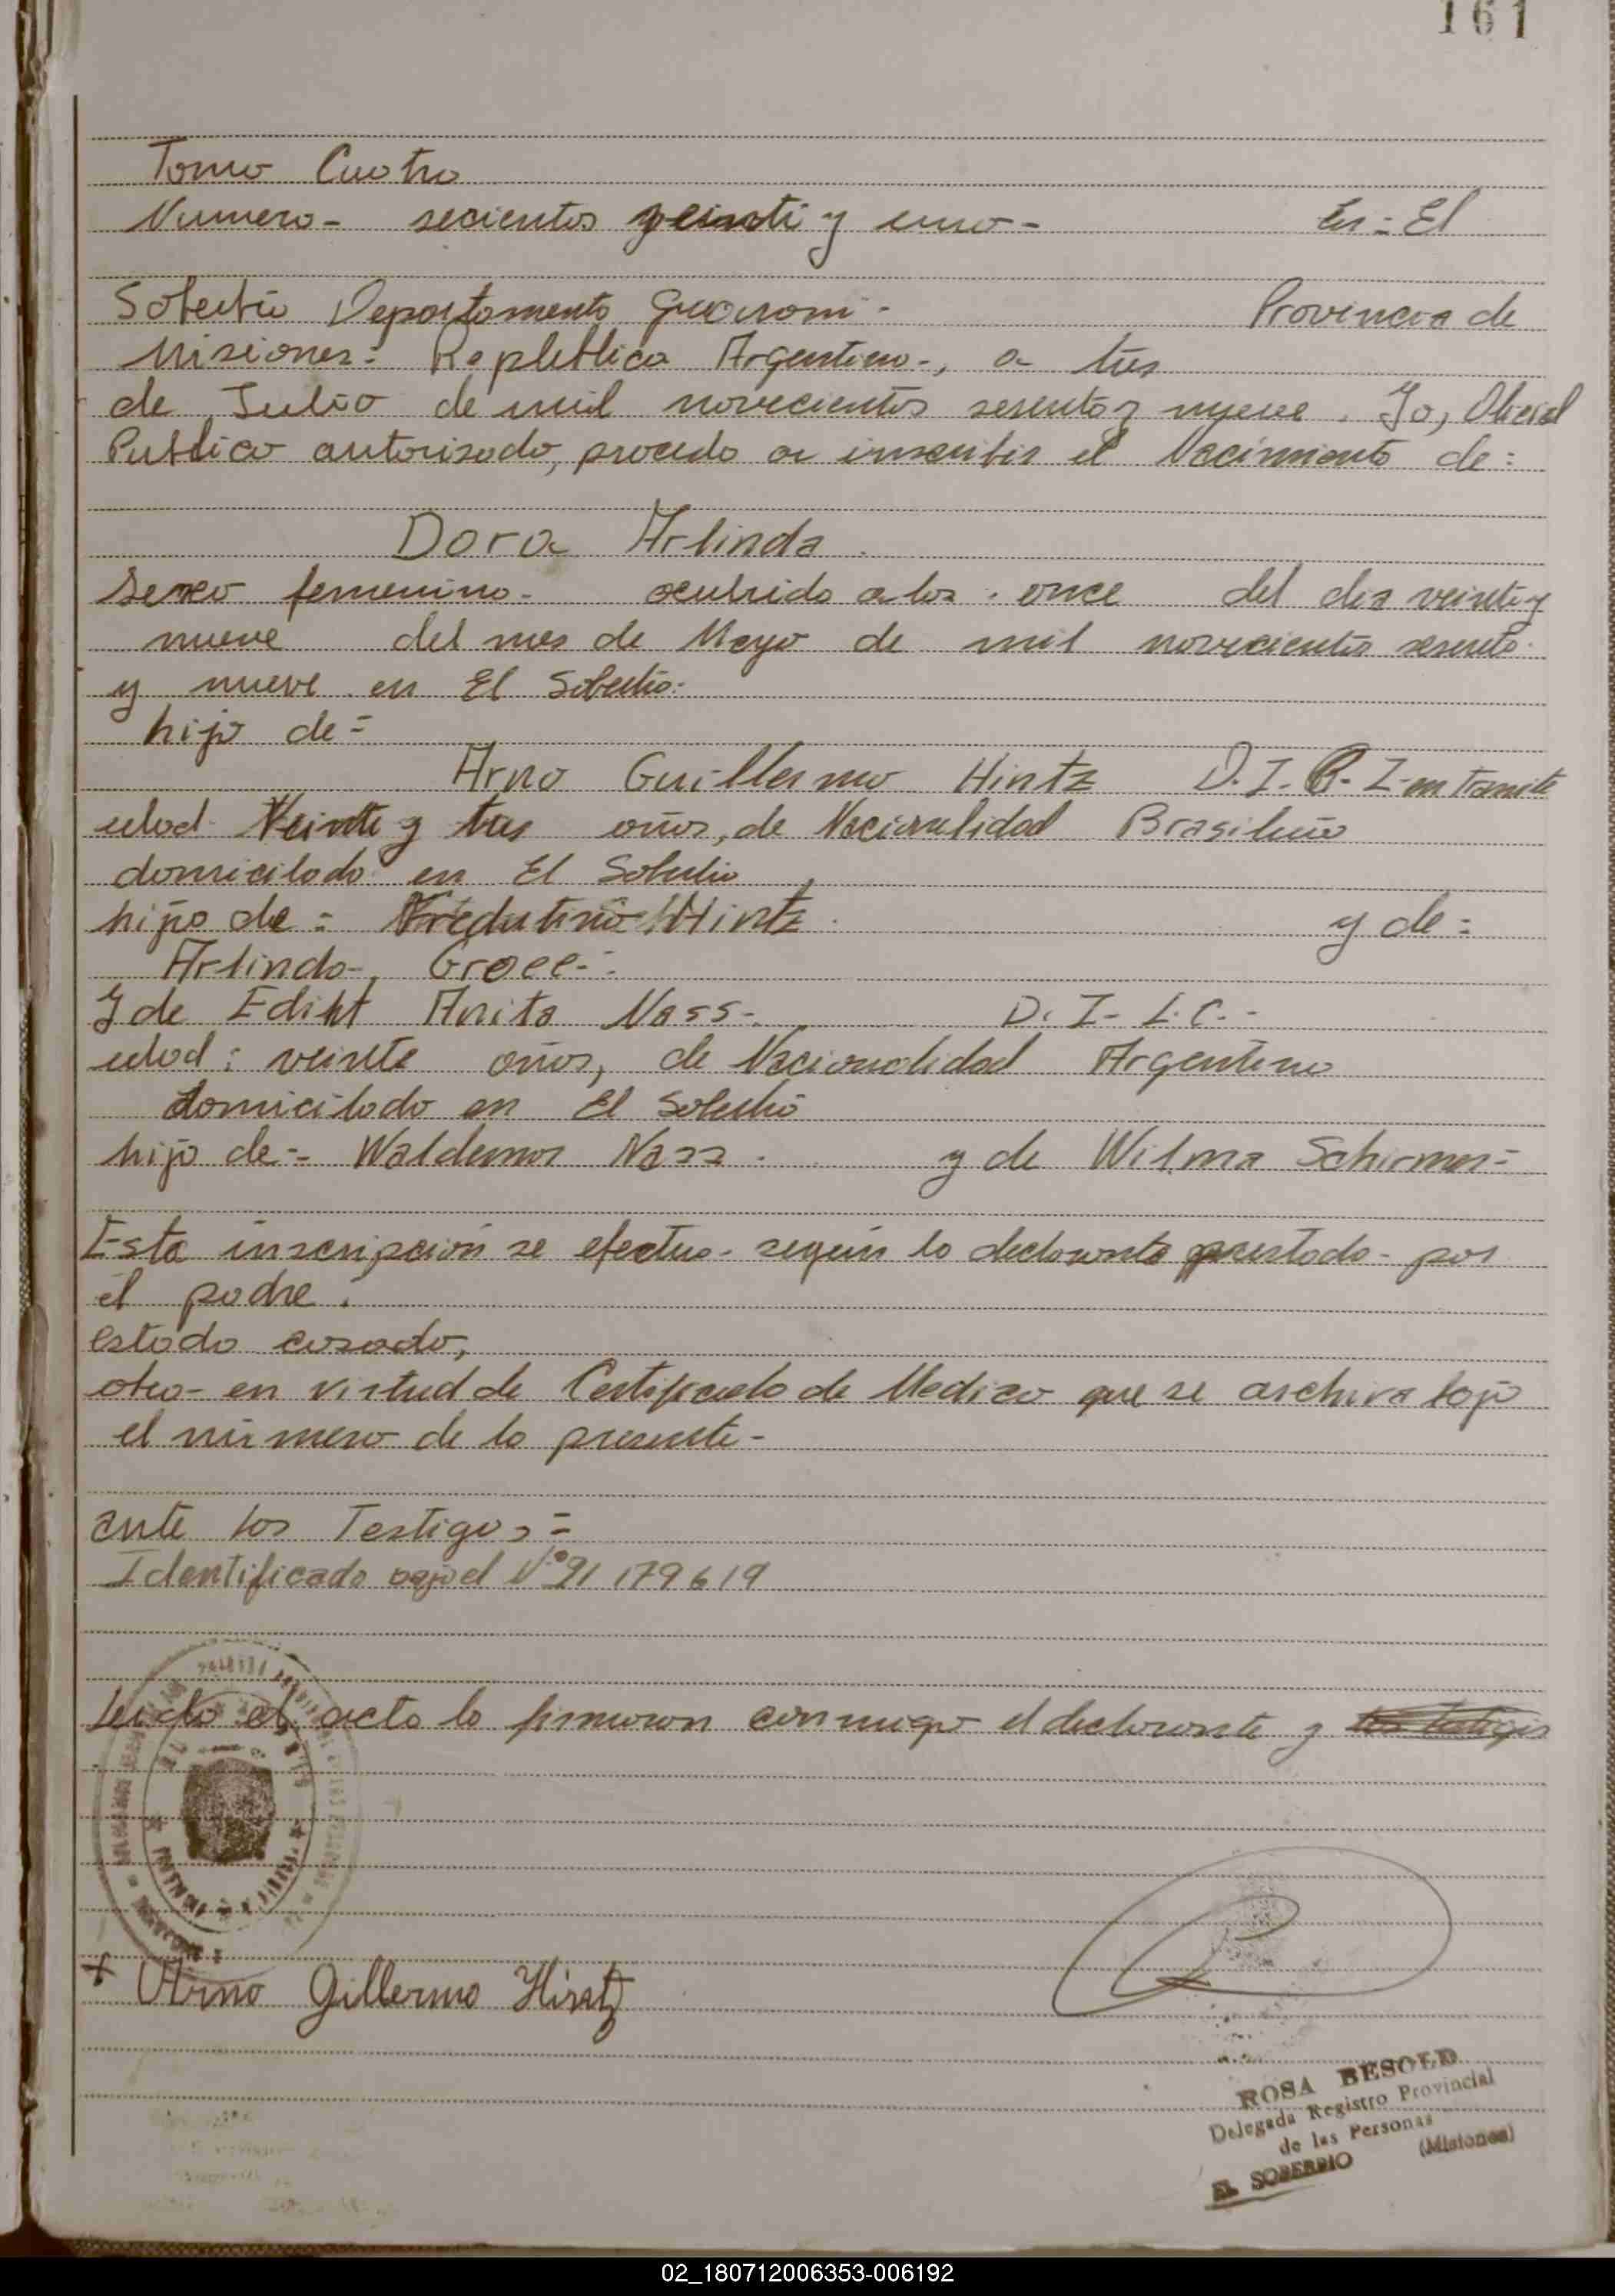 161
Tomo Cuatro
Numero- secientos veinti y uno-
En = El
Soberbio Departamento Guarani -
Provincia de
Misiones = Republica Argentina-, a tres
de Julio de mil novecientos sesenta y nueve. Yo, Oficial
Publico autorisado, procedo a inscribir el Nacimiento de:
Dora Arlinda
sexo femenino- ocurrido a las once del dia veinte y
nueve del mes de Mayo de mil novecientos sesenta
y nueve en El Soberbio:
hijo de =
Arno Guillermo Hintz D.I. R. I- en tramite
edad Veinte y tres años, de Nacionalidad Brasileño
domicilado en El Soberbio
hijo de = Hintz y de =
Arlinda Groee-
Y de Ediht Anita Nass- D. I- L.C. -
edad: veinte años, de Nacionalidad Argentina
domicilado en El Soberbio
hijo de = Waldemar Nass - y de Wilma Schirmer=
Esta inscripcion se efectua- según lo declarante prestada- por
el padre.
estado casado,
obra- en virtud de Certificado de Medico que se archiva bajo
el número de la presente-
ante los Testigos =
Identificado bajo el Nº 21 179619
Leido el acta la firmaron conmigo el declarante y los testigos
+ Arno Gillermo Hintz
ROSA BESOLD
Delegada Registro Provincial
de las Personas
EL SOBERBIO (Misiones)
02_180712006353-006192